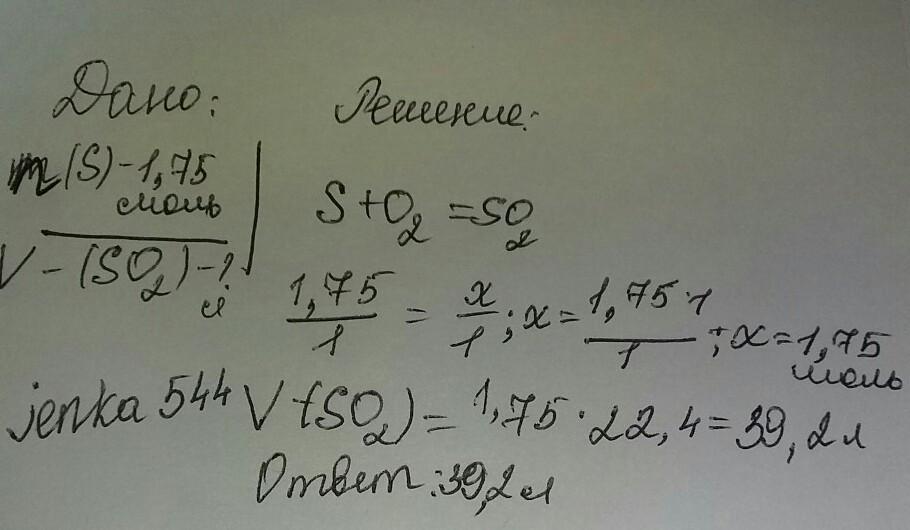 Дано:
m(S)-1,75
моль
V-(SO2)-?
л
Решение:
S+O2=SO2
1,75/1 = x/1; x=1,75·1/1; x=1,75
моль
jenka 544
V(SO2)=1,75·22,4=39,2л
Ответ:39,2л